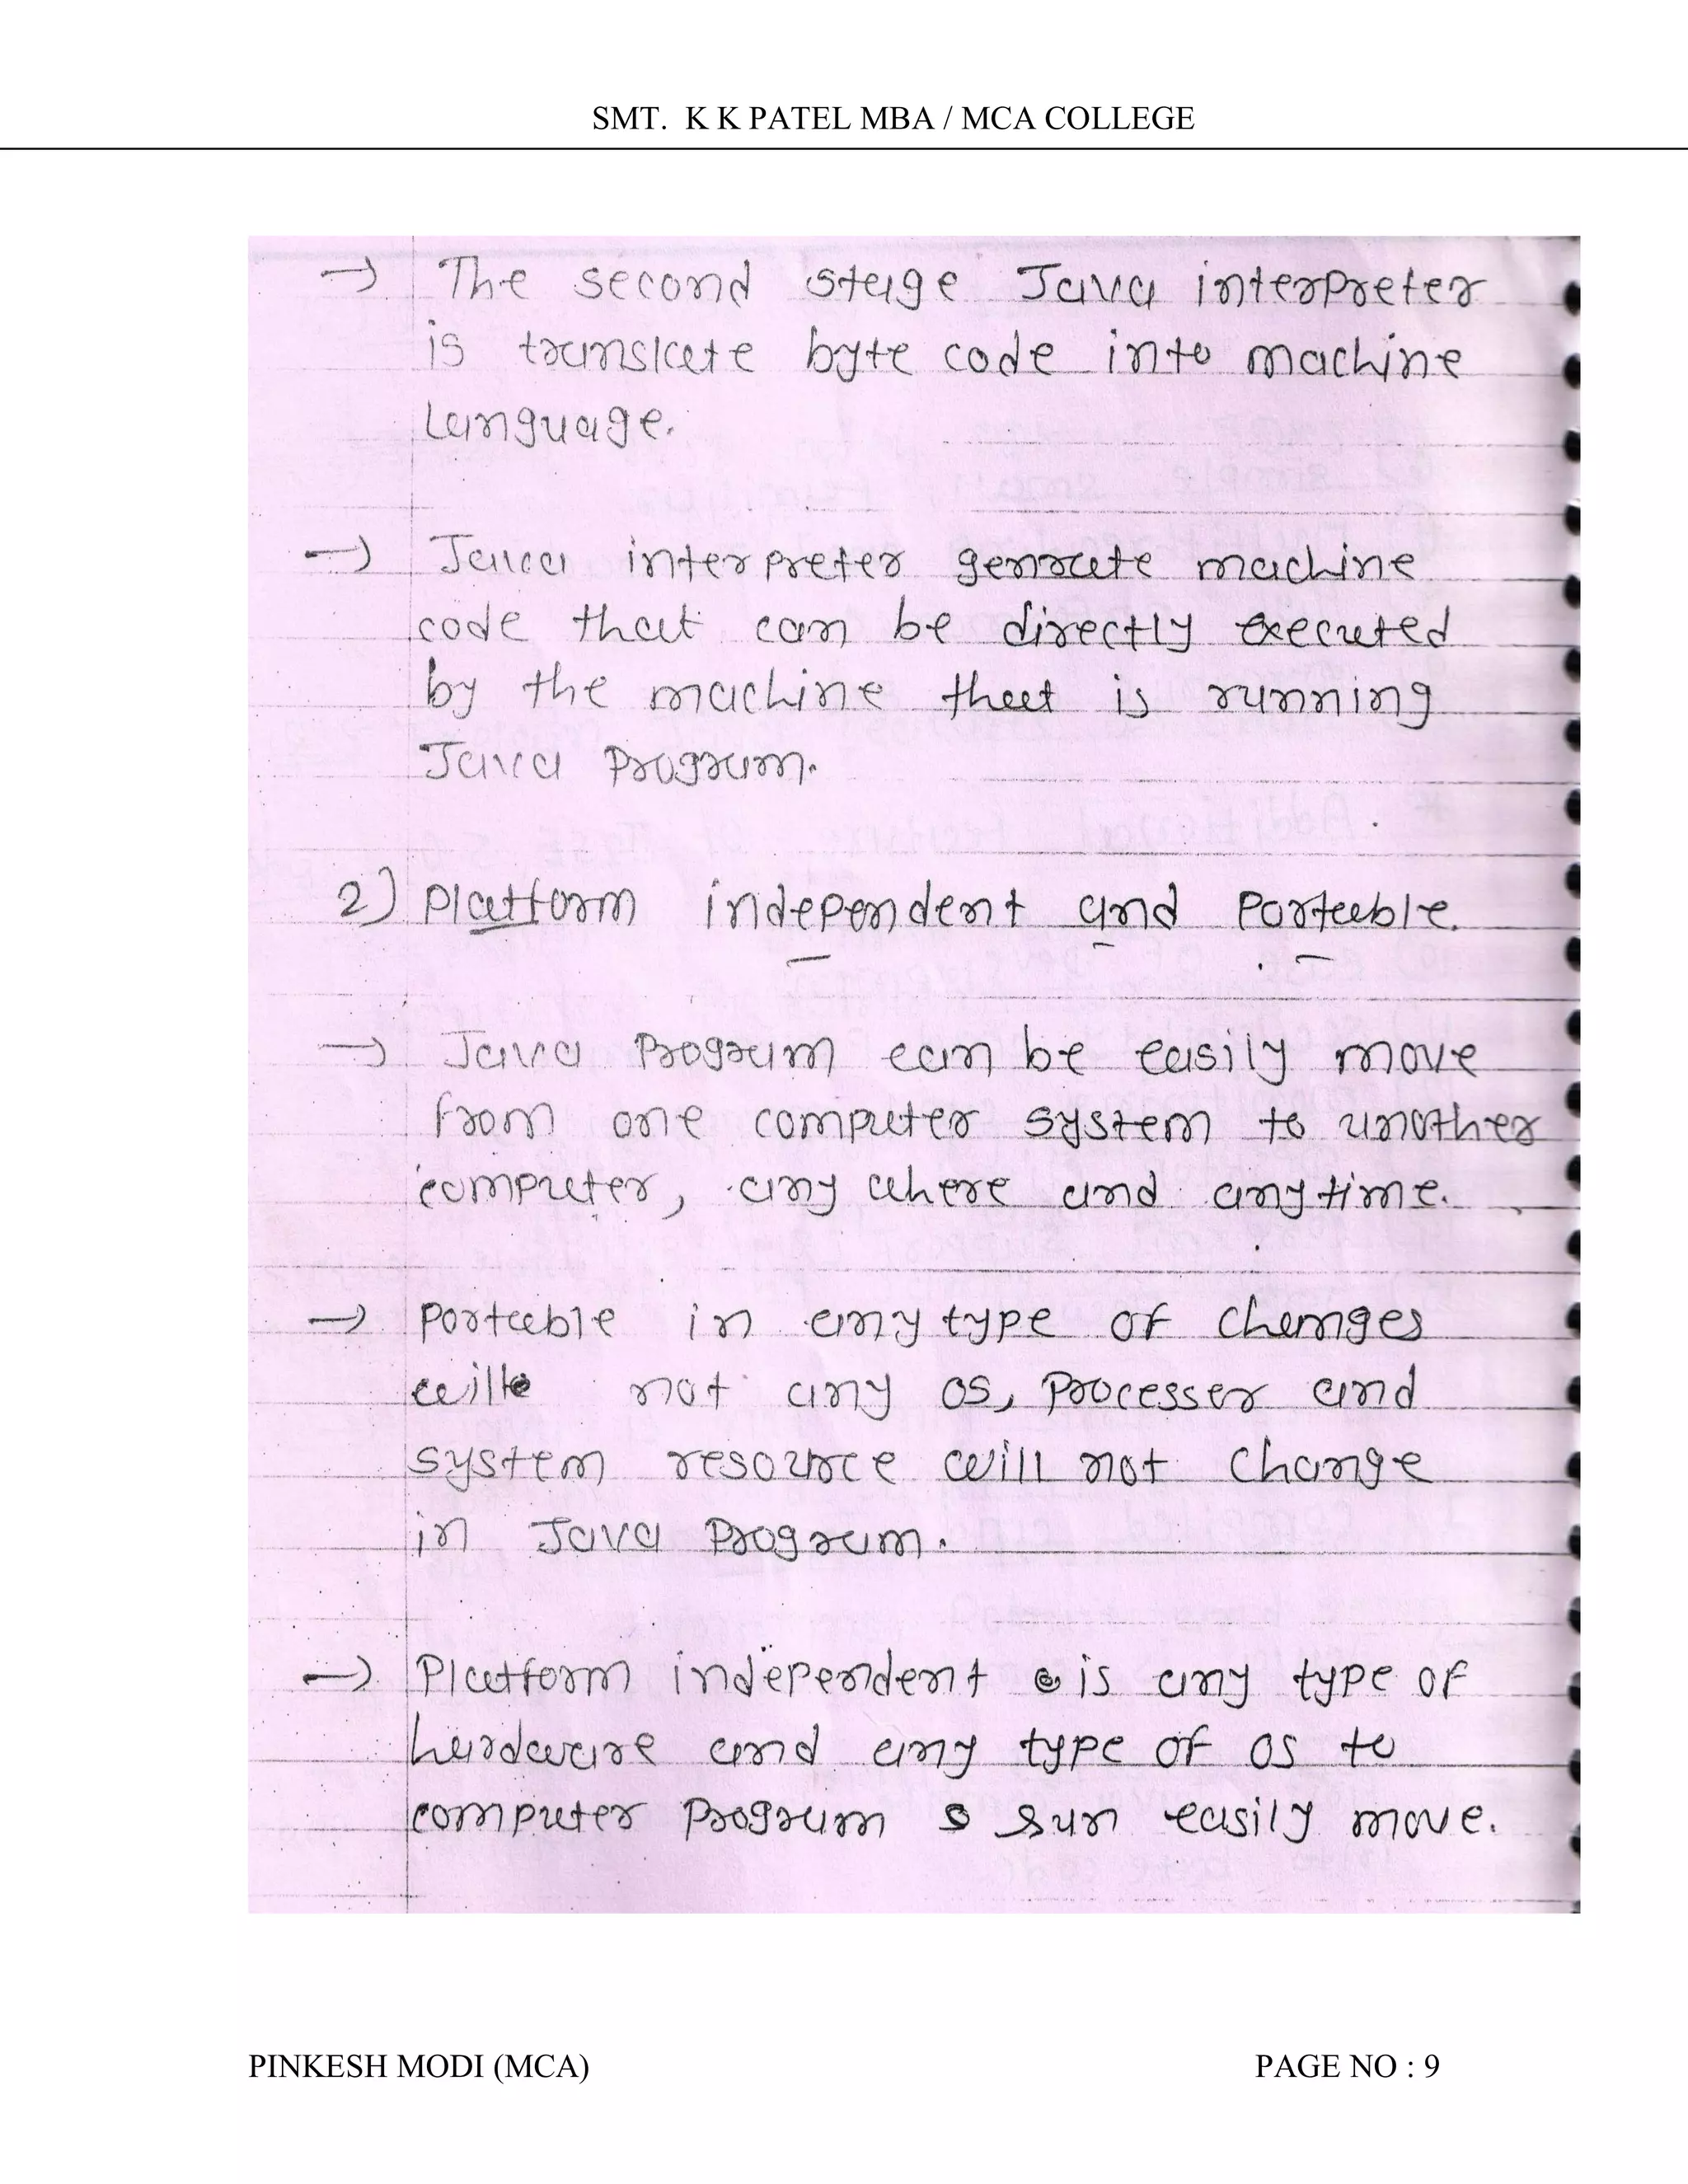 SMT. K K PATEL MBA / MCA COLLEGE
→ The second stage Java interpreter
is translate byte code into machine
Language.
→ Java interpreter genrate machine
code that can be directly executed
by the machine that is running
Java Program.
2) Platform independent and Portable.
→ Java Program can be easily move
from one computer system to another
computer, any where and anytime.
→ Portable in any type of changes
will not any OS, Processer and
system resource will not change
in Java Program.
→ Platform independent is any type of
hardware and any type of OS to
computer Program run easily move.
PINKESH MODI (MCA)
PAGE NO : 9